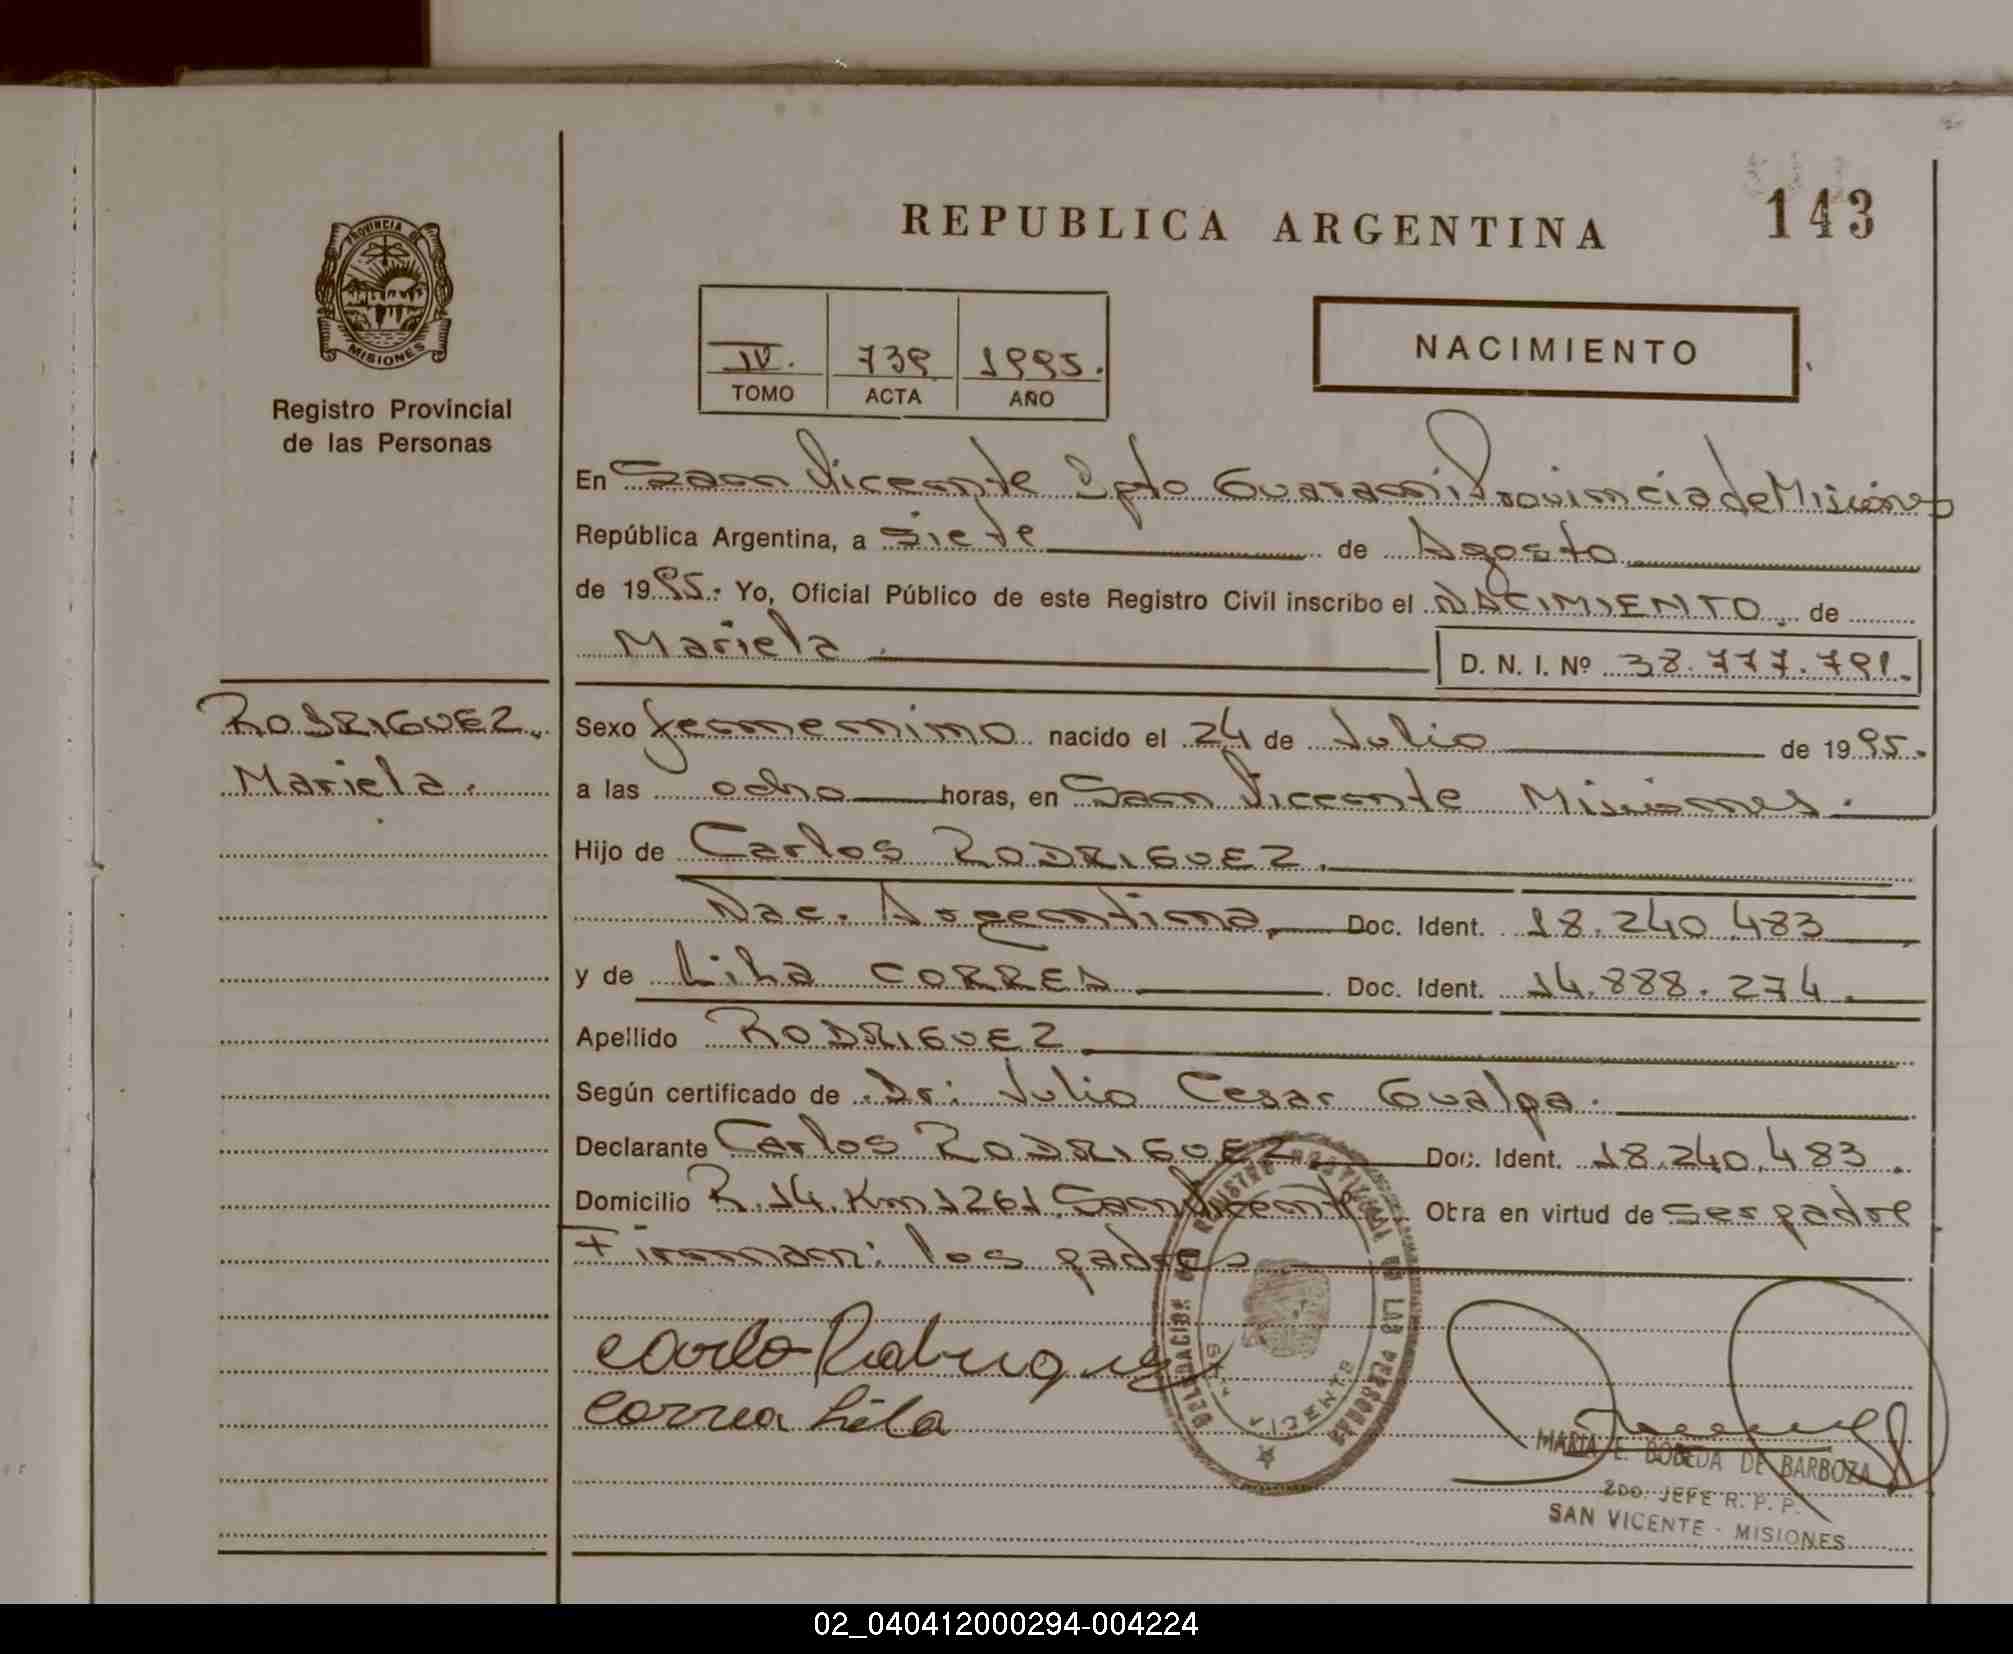 REPUBLICA ARGENTINA
143
PROVINCIA DE
MISIONES
Registro Provincial
de las Personas
IV. 739 1995.
TOMO ACTA AÑO
NACIMIENTO
En San Vicente Dpto Guarani Provincia de Misiones
República Argentina, a siete de Agosto
de 1995. Yo, Oficial Público de este Registro Civil inscribo el NACIMIENTO de
Mariela. D. N. I. Nº 38.777.791.
RODRIGUEZ
Mariela.
Sexo femenino nacido el 24 de Julio de 1995.
a las ocho horas, en San Vicente Misiones.
Hijo de Carlos RODRIGUEZ.
Nac. Argentina. Doc. Ident. 18.240.483
y de Lila CORREA Doc. Ident. 14.888.274.
Apellido RODRIGUEZ
Según certificado de Dr: Julio Cesar Gualpa.
Declarante Carlos RODRIGUEZ Doc. Ident. 18.240.483.
Domicilio R. 14 Km 1261 San Vicente Obra en virtud de ser padre
Firman: los padres
Carlo Rodriguez
Correa Lila
DELEGACION REGISTRO PROVINCIAL DE LAS PERSONAS
SAN VICENTE
MARIA E. BOBEDA DE BARBOZA
2DO. JEFE R. P. P.
SAN VICENTE - MISIONES
02_040412000294-004224